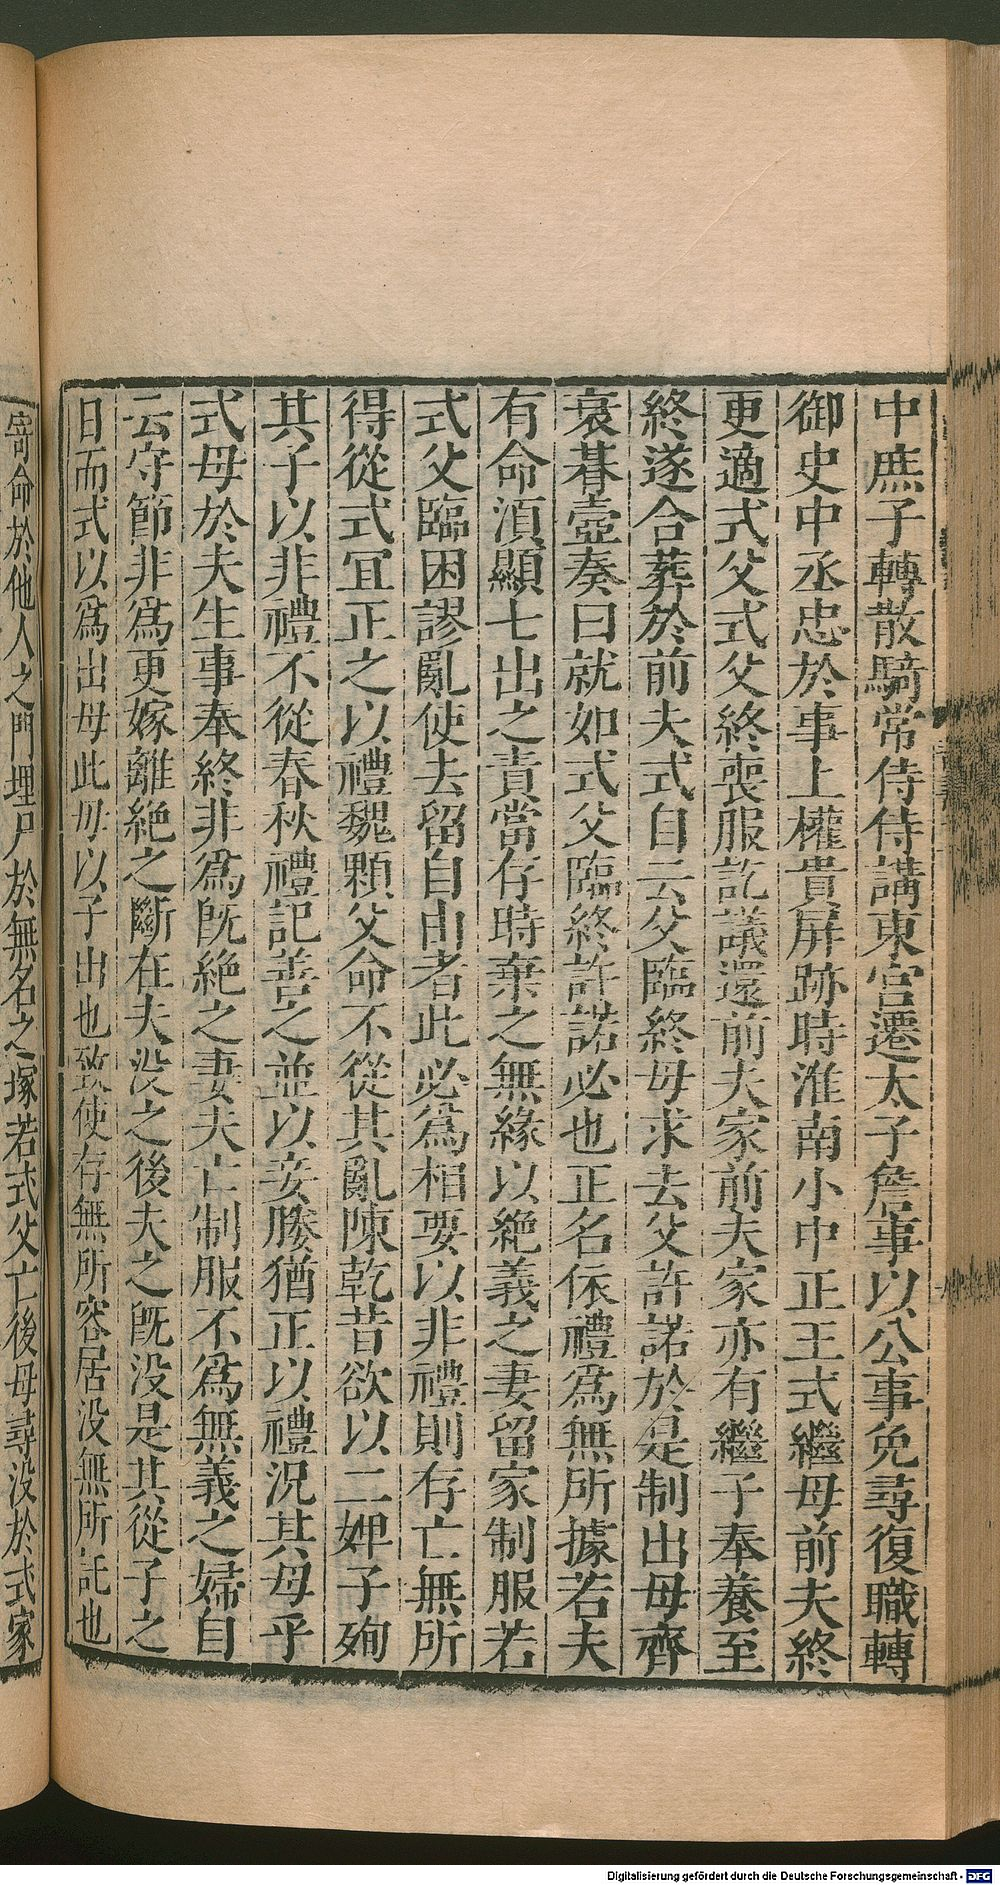 中庶子轉散騎常侍侍講東宮遷太子詹事以公事免尋復職轉
御史中丞忠於事上權貴屏跡時淮南小中正王式繼母前夫終
更適式父式父終喪服訖議還前夫家前夫家亦有繼子奉養至
終遂合葬於前夫式自云父臨終母求去父許諾於是制出母齊
衰朞壺奏曰就如式父臨終許諾必也正名依禮爲無所據若夫
有命湏顯七出之責當存時棄之無緣以絶義之妻留家制服若
式父臨困謬亂使去留自由者此必爲相要以非禮則存亡無所
得從式冝正之以禮魏顆父命不從其亂陳乾昔欲以二婢子殉
其子以非禮不從春秋禮記善之並以妾媵猶正以禮況其母乎
式母於夫生事奉終非爲旣絶之妻夫亡制服不爲無義之婦自
云守節非爲更嫁離絶之斷在夫没之後夫之旣没是其從子之
日而式以爲出母此母以子出也致使存無所容居没無所託也
寄命於他人之門埋尸於無名之塚若式父亡後母尋没於式家
Digitalisierung gefördert durch die Deutsche Forschungsgemeinschaft - DFG